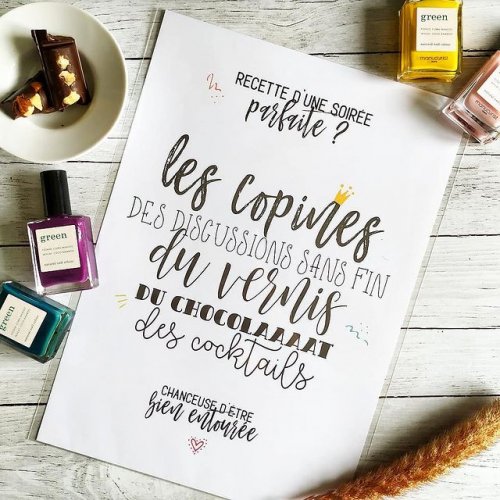 RECETTE D'UNE SOIRÉE
parfaite ?
les copines
DES DISCUSSIONS SANS FIN
du vernis
DU CHOCOLAAAAT
des cocktails
CHANCEUSE D'ÊTRE
bien entourée
green
green
green
manucurist
green